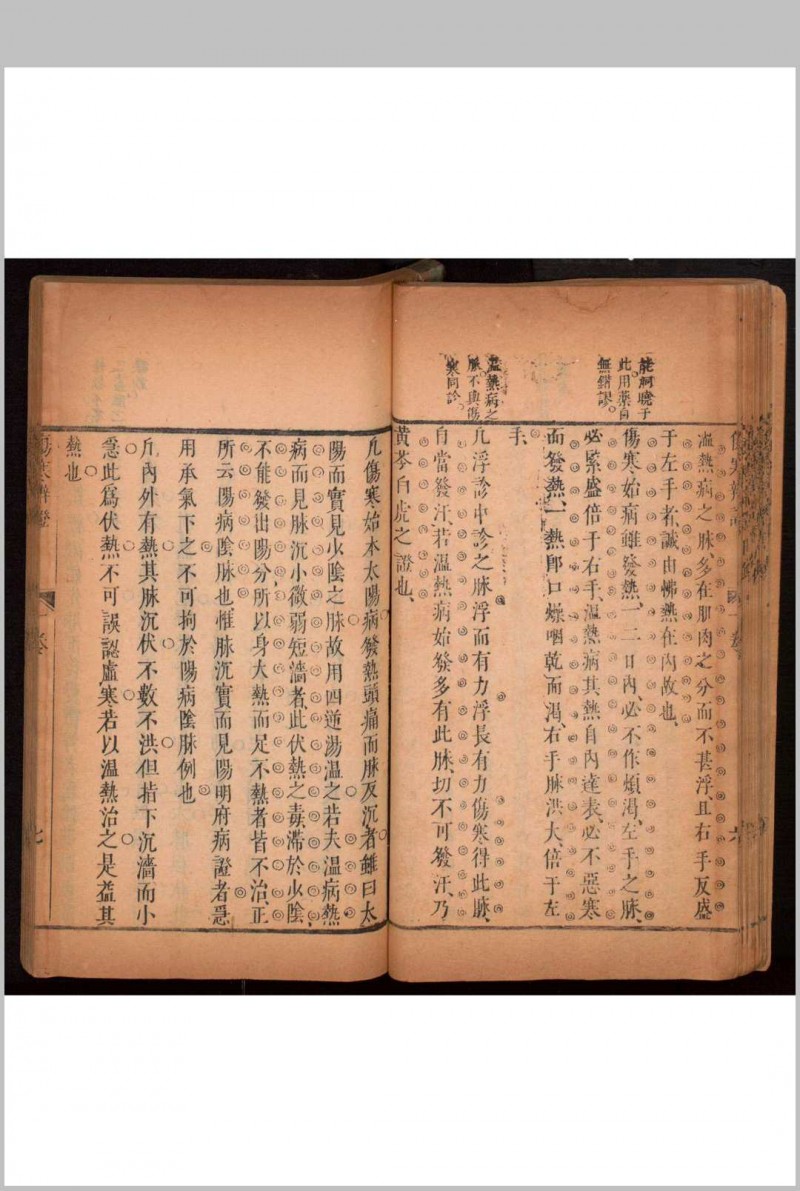 能細聸于
此用藥自
無錯謬
溫熱病之
脉不與傷
寒同診
溫熱病之脉、多在肌肉之分而不甚浮、且右手反盛
于左手者、誠由怫熱在內故也、
傷寒始病雖發熱、一二日內、必不作煩渴、左手之脉、
必緊盛倍于右手、溫熱病其熱自內達表、必不惡寒
而發熱、一熱即口燥咽乾而渴、右手脉洪大倍于左
手、
凡浮診中診之脉、浮而有力、浮長有力、傷寒得此脉、
自當發汗、若溫熱病始發多有此脉、切不可發汗、乃
黃芩白虎之證也、
凡傷寒始本太陽病發熱頭痛而脉反沉者雖曰太
陽而實見少陰之脉故用四逆湯溫之若夫溫病熱
病而見脉沉小微弱短濇者、此伏熱之毒滯於少陰、
不能發出陽分所以身大熱而足不熱者皆不治、正
所云陽病陰脉也惟脉沉實而見陽明府病證者急
用承氣下之不可拘於陽病陰脉例也
凡內外有熱其脉沉伏不數不洪但指下沉濇而小
急此爲伏熱不可誤認虛寒若以溫熱治之是益其
熱也
傷寒辨證 一卷 七